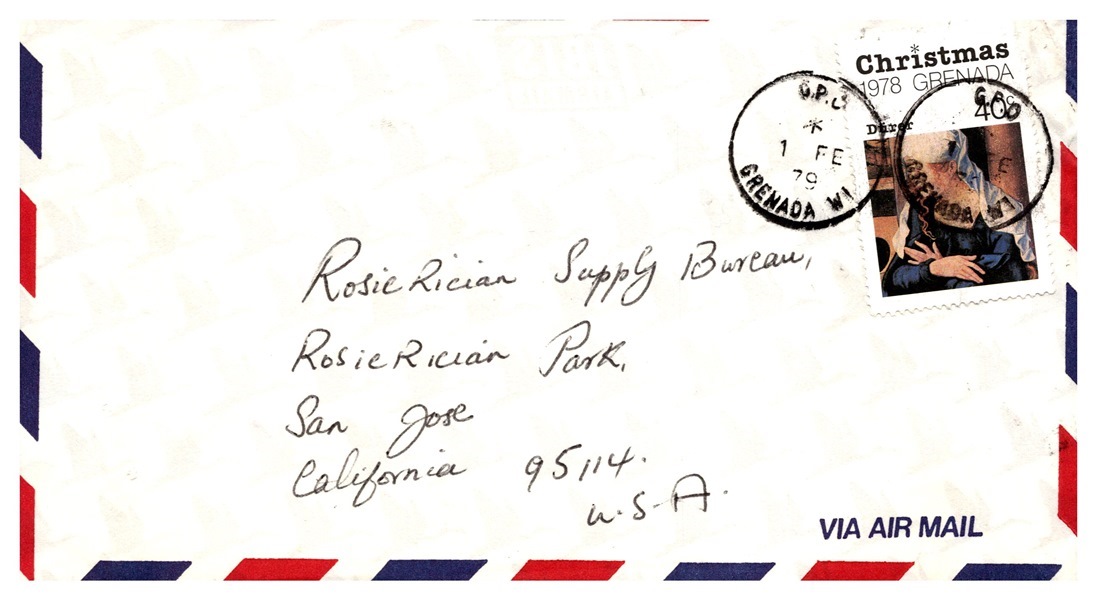 Christmas
1978 GRENADA
40c
Dürer
G.P.O
*
1 FE
79
GRENADA WI
G.P.O
FE
GRENADA WI
RosieRician Supply Bureau,
RosieRician Park,
San Jose
California 95114.
U.S.A.
VIA AIR MAIL